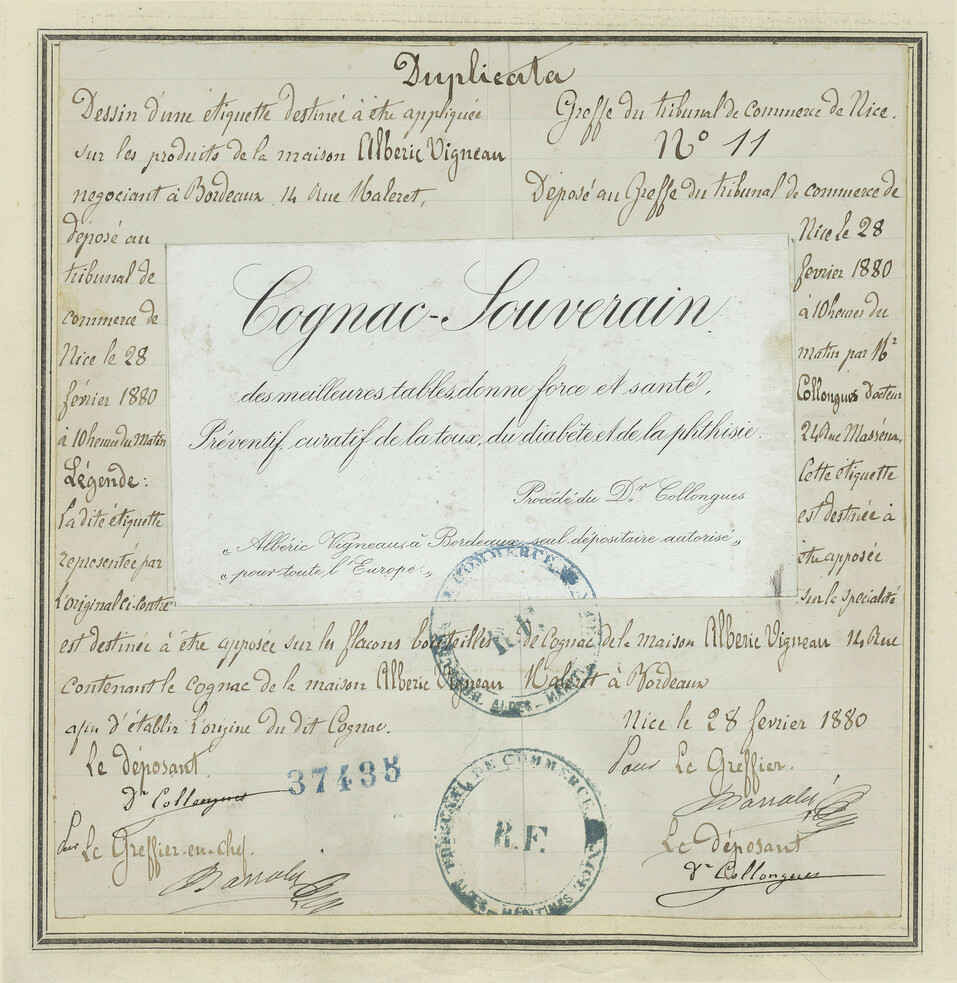 Duplicata
Dessin d'une étiquette destinée à être appliquée
sur les produits de la maison Albéric Vigneau
négociant à Bordeaux 14 Rue Maleret,
déposé au
tribunal de
commerce de
Nice le 28
février 1880
à 10 heures du Matin
Légende:
La dite étiquette
représentée par
l'original ci-contre
est destinée à être apposée sur les flacons bouteilles
contenant le cognac de la maison Albéric Vigneau
afin d'établir l'origine du dit Cognac.
Le déposant
Dr Collongues
37435
Pour Le Greffier-en-chef.
Greffe du tribunal de commerce de Nice.
N° 11
Déposé au Greffe du tribunal de commerce de
Nice le 28
fevrier 1880
à 10 heures du
matin par Mr
Collongues Docteur
24 Rue Masséna.
Cette étiquette
est destinée à
être apposée
sur la spécialité
de Cognac de la maison Albéric Vigneau 14 Rue
Maleret à Bordeaux
Nice le 28 fevrier 1880
Pour Le Greffier.
Le déposant
Dr Collongues
Cognac-Souverain.
des meilleures tables, donne force et santé,
Préventif, curatif de la toux, du diabète et de la phthisie.
Procédé du Dr. Collongues
„ Albéric Vigneau, à Bordeaux, seul dépositaire autorisé „
„ pour toute l'Europe. „
COMMERCE
R.F.
ALPES-MARIT
TRIBUNAL DE COMMERCE NICE
R.F.
ALPES-MARITIMES